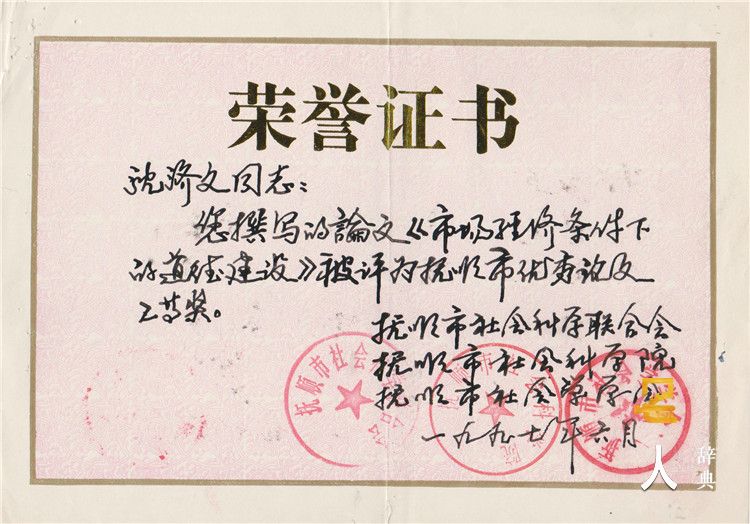 荣誉证书
沈济文同志：
您撰写的論文《市场经济条件下
的道德建设》被评为抚顺市优秀论文
二等奖。
抚顺市社会科学联合会
抚顺市社会科学院
抚顺市社会学会
一九九七年六月
抚顺市社会
人 辞典